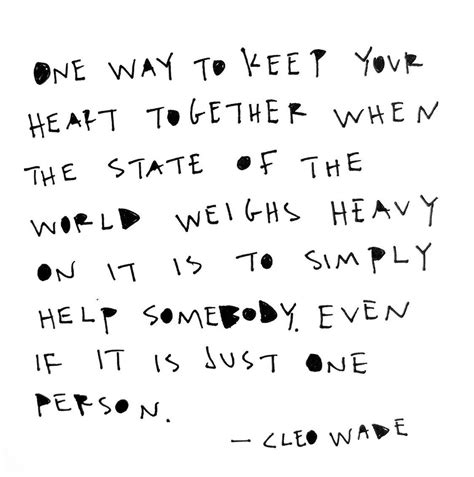 ONE WAY TO KEEP YOUR
HEART TOGETHER WHEN
THE STATE OF THE
WORLD WEIGHS HEAVY
ON IT IS TO SIMPLY
HELP SOMEBODY. EVEN
IF IT IS JUST ONE
PERSON.
— CLEO WADE